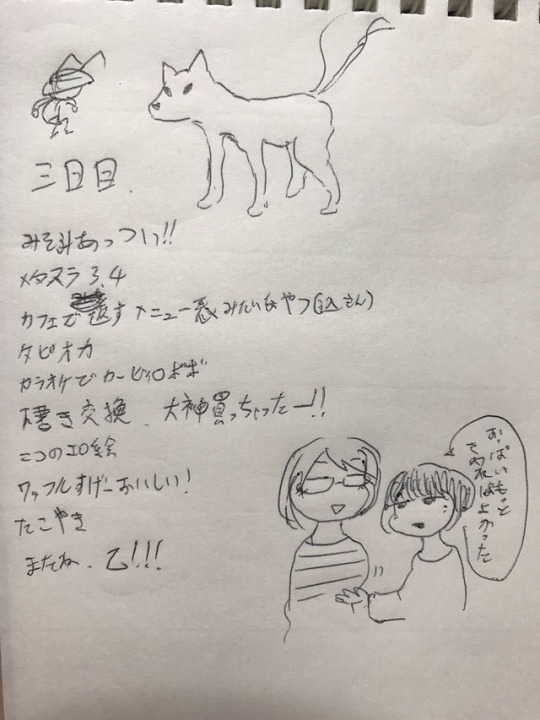 三日目.
みそ汁あっつい!!
メタスラ3,4
カフェで返すメニュー表みたいなやつ(込さん)
タピオカ
カラオケでカービィロボボ
書き交換、大神買っちゃったー!!
ニコのエロ絵
ワッフルすげーおいしい!
たこやき
またね、乙!!!
おっぱいもっと
さわればよかった